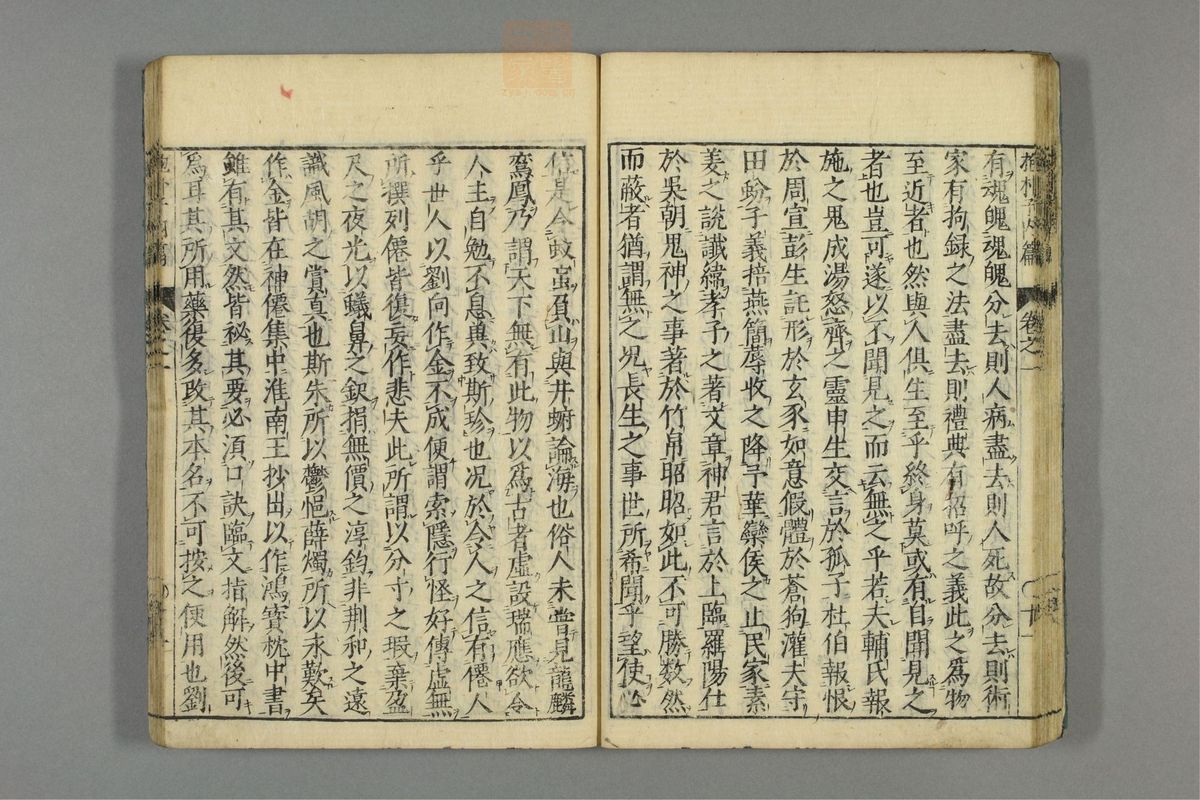 有魂魄魂魄分去則人病盡去則人死故分去則術
家有拘録之法盡去則禮典有招呼之義此之爲物
至近者也然與人俱生至乎終身莫或有自聞見之
者也豈可遂以不聞見之而云無之乎若夫輔氏報
施之鬼成湯怒齊之靈申生交言於狐子杜伯報恨
於周宣彭生託形於玄豕如意假體於蒼狗灌夫守
田蚡子義掊燕簡蓐收之降于莘欒侯之止民家素
姜之說讖緯孝子之著文章神君言於上臨羅陽仕
於吳朝鬼神之事著於竹帛昭昭如此不可勝數然
而蔽者猶謂無之况長生之事世所希聞乎望使必
信是令蚊䖟負山與井蛙論海也俗人未嘗見龍麟
鸞鳳乃謂天下無有此物以爲古者虛設瑞應欲令
人主自勉不息兾致斯珍也况於令人之信有僊人
乎世人以劉向作金不成便謂索隱行怪好傳虛無
所撰列僊皆復妄作悲夫此所謂以分寸之瑕棄盈
尺之夜光以蟻鼻之缺捐無價之淳鈞非荆和之遠
識風胡之賞真也斯朱所以鬱悒薛燭所以永歎矣
作金皆在神僊集中淮南王抄出以作鴻寶枕中書
雖有其文然皆祕其要必須口訣臨文指解然後可
爲耳其所用藥復多改其本名不可按之便用也劉